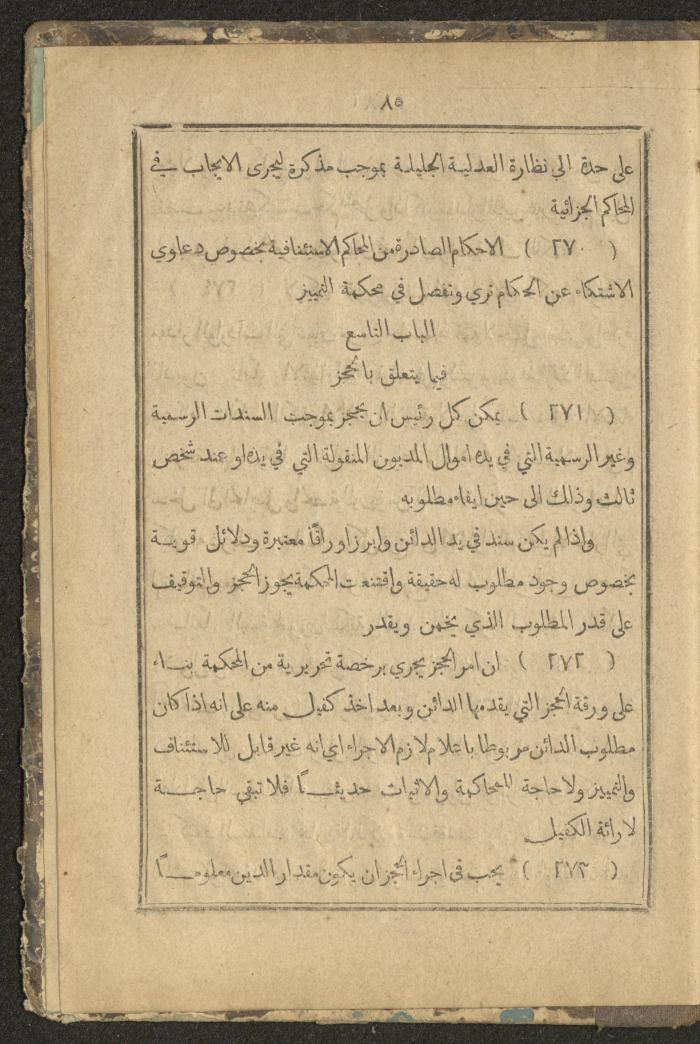 ٨٥
على حدة الي نظارة العدلية الجليلة بموجب مذكرة ليجرى الايجاب في
المحاكم الجزائية
( ٢٧٠ ) الاحكام الصادرة من المحاكم الاستئنافية بخصوص دعاوي
الاشتكاء عن الحكام تري وتفصل في محكمة التمييز
الباب التاسع
فيما يتعلق بالحجز
( ٢٧١ ) يمكن كل رئيس ان يحجز بموجب السندات الرسمية
وغير الرسمية التي في يده اموال المديون المنقولة التي في يده او عند شخص
ثالث وذلك الى حين ايفاء مطلوبه
واذا لم يكن سند في يد الدائن وابرز اوراقًا معتبرة ودلائل قويسة
بخصوص وجود مطلوب له حقيقة واقتنعت المحكمة يجوز الحجز والتوقيف
على قدر المطلوب الذي يخمن ويقدر
( ٢٧٢ ) ان امر الحجز يجري برخصة تحريرية من المحكمة بناء
على ورقة الحجز التي يقدمها الدائن وبعد اخذ كفيل منه على انه اذا كان
مطلوب الدائن مربوطا باعلام لازم الاجراء اي انه غير قابل للاستئناف
والتمييز ولا حاجة للمحاكمة والاثبات حديثًا فلا تبقي حاجة
لارائة الكفيل
( ٢٧٣ ) يجب في اجراء الحجز ان يكون مقدار الدين معلومًا